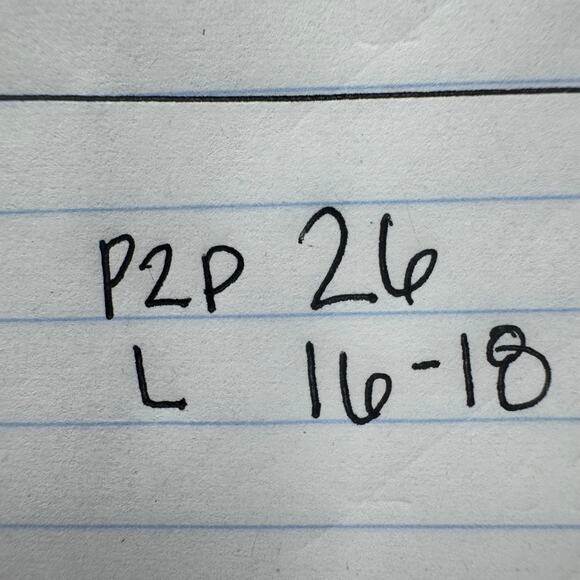 P2P 26
L 16-18